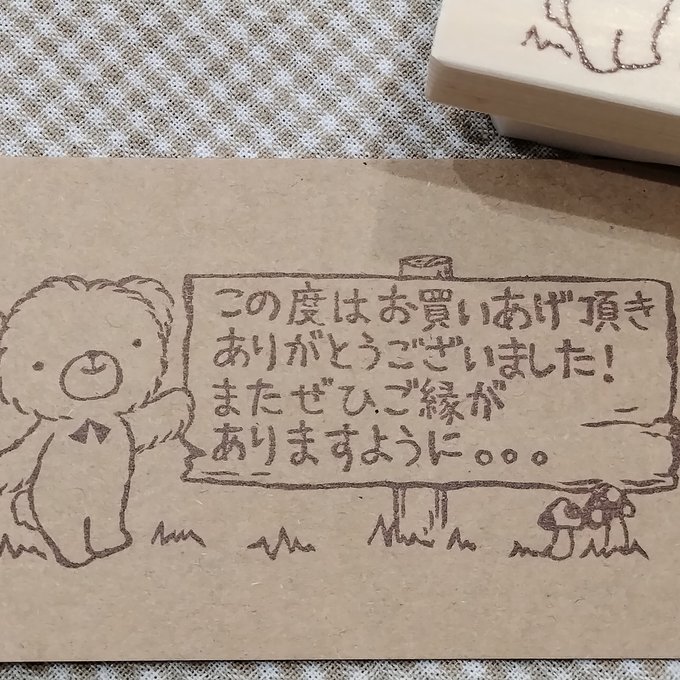 この度はお買いあげ頂き
ありがとうございました!
またぜひご縁が
ありますように。。。